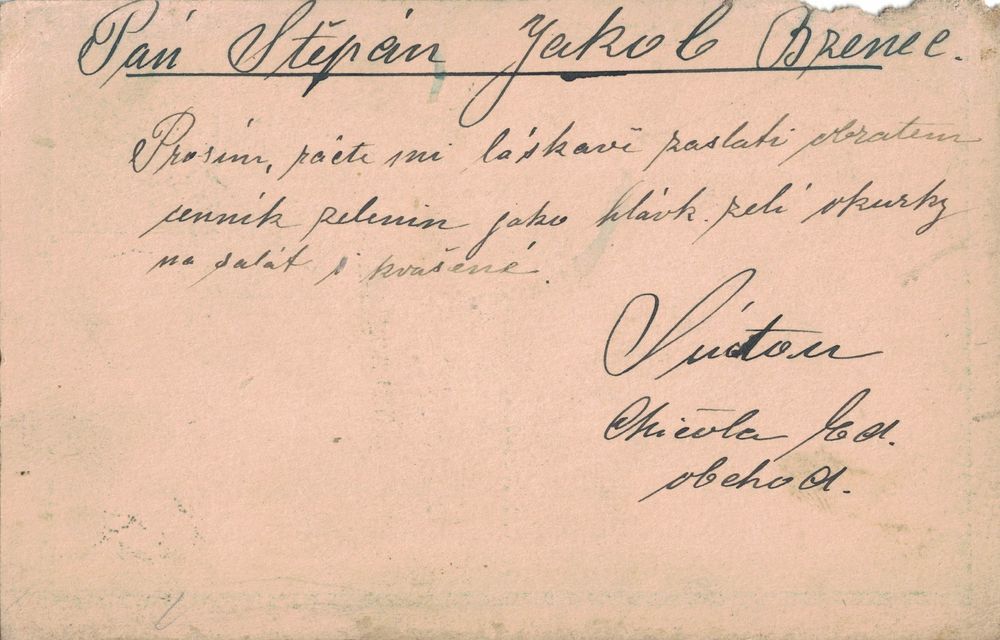 Pán Štěpán Jakob Bzenec.
Prosím, ráčte mi láskavě zaslati obratem
cenník zelenin jako hlávk. zelí okurky
na salát i kvašené.
S úctou
Ed.
obchod.